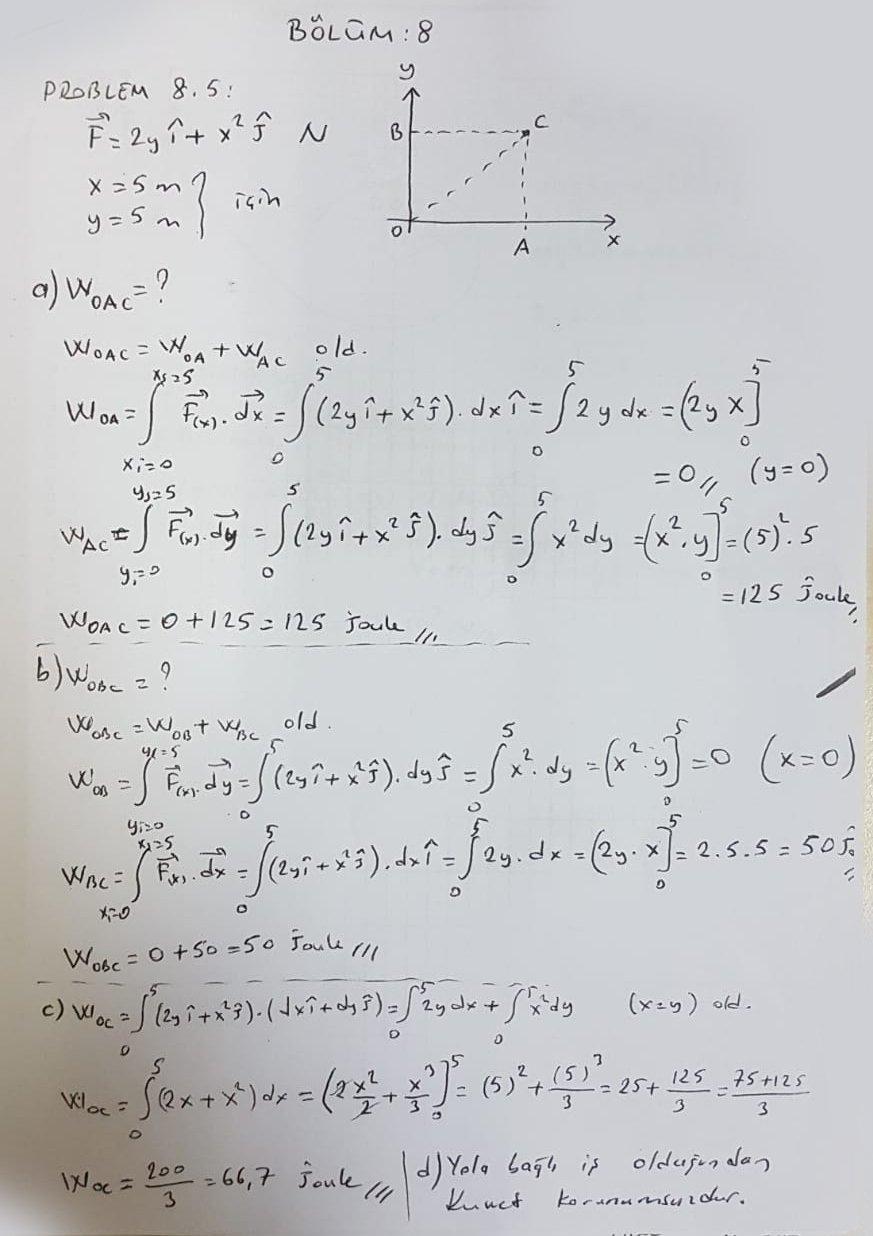 BÖLÜM : 8
PROBLEM 8.5:
F⃗ = 2y î + x² ĵ N
x = 5 m
y = 5 m } için
y
B
C
O
A
x
a) W_OAC = ?
W_OAC = W_OA + W_AC old.
W_OA = ∫_{xi=0}^{xs=5} F⃗(x). dx⃗ = ∫_0^5 (2y î + x² ĵ). dx î = ∫_0^5 2y dx = (2y x]_0^5
= 0 // (y=0)
W_AC = ∫_{yi=0}^{ys=5} F⃗(x). dy⃗ = ∫_0^5 (2y î + x² ĵ). dy ĵ = ∫_0^5 x² dy = (x². y]_0^5 = (5)². 5
= 125 Joule //
W_OAC = 0 + 125 = 125 Joule ///
b) W_OBC = ?
W_OBC = W_OB + W_BC old.
W_OB = ∫_{yi=0}^{ys=5} F⃗(x). dy⃗ = ∫_0^5 (2y î + x² ĵ). dy ĵ = ∫_0^5 x². dy = (x². y]_0^5 = 0 (x=0)
W_BC = ∫_{xi=0}^{xs=5} F⃗(x). dx⃗ = ∫_0^5 (2y î + x² ĵ). dx î = ∫_0^5 2y. dx = (2y. x]_0^5 = 2.5.5 = 50 J. //
W_OBC = 0 + 50 = 50 Joule ///
c) W_OC = ∫_0^5 (2y î + x² ĵ). (dx î + dy ĵ) = ∫_0^5 2y dx + ∫_0^5 x² dy (x=y) old.
W_OC = ∫_0^5 (2x + x²) dx = (2 x²/2 + x³/3]_0^5 = (5)² + (5)³/3 = 25 + 125/3 = 75+125/3
W_OC = 200/3 = 66,7 Joule ///
d) Yola bağlı iş olduğundan
Kuvvet korunumsuzdur.